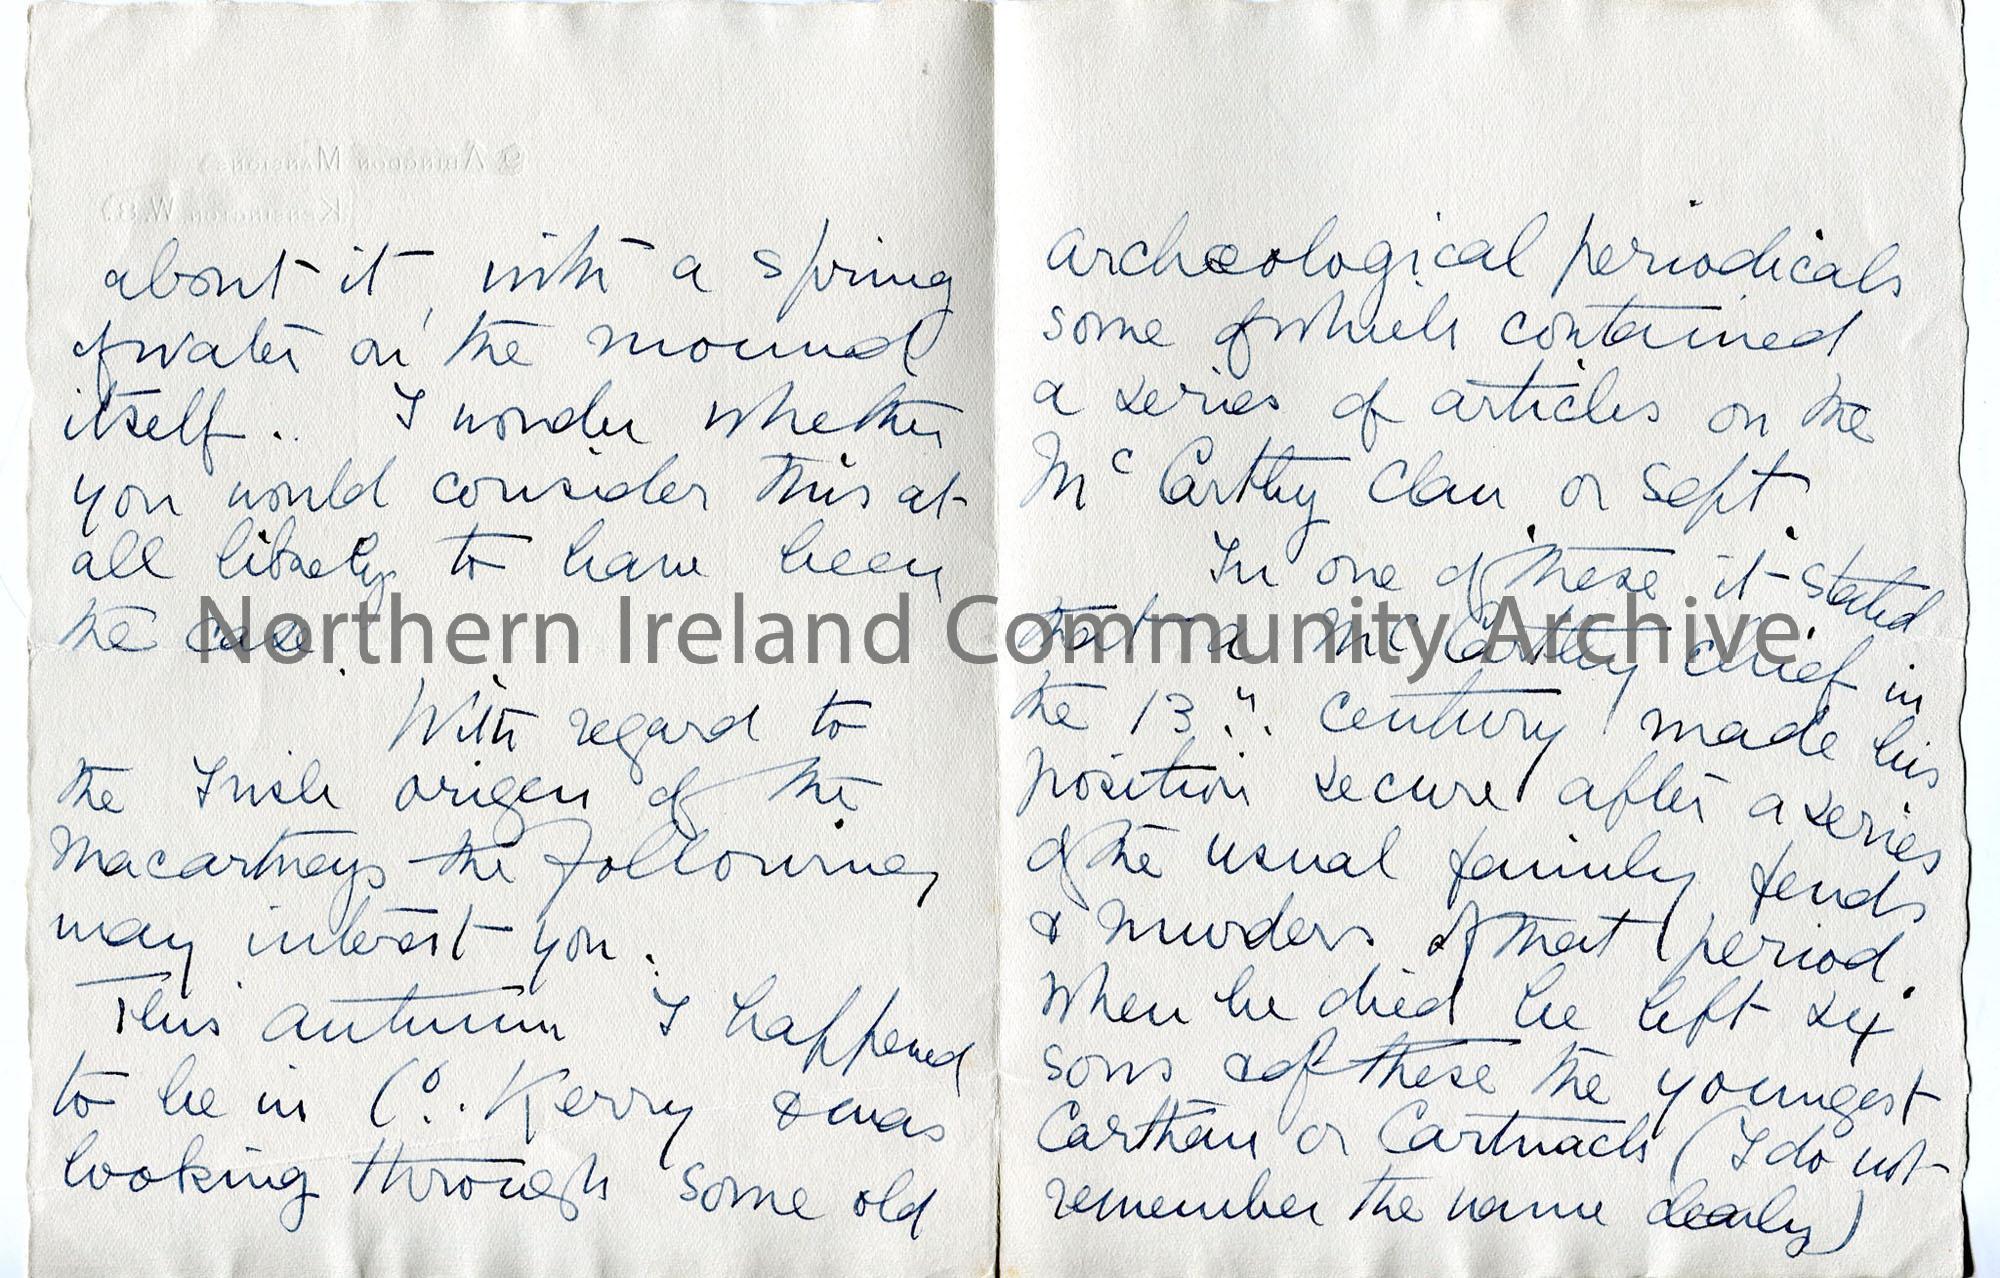 9 Abingdon Mansions
Kensington W.8.
about it, with a spring
of water on the mound
itself.. I wonder whether
you would consider this at
all likely to have been
the case.
With regard to
the Irish origen of the
Macartneys the following
may interest you.
This autumn I happened
to be in Co. Kerry & was
looking through some old
archæological periodicals
some of which contained
a series of articles on the
McCarthy Clan or Sept.
In one of these it stated
that a McCarthy chief in
the 13" century made his
position secure after a series
of the usual family feuds
& murders of that period.
When he died he left six
sons & of these the youngest
Carthan or Cartnach (I do not
remember the name clearly)
Northern Ireland Community Archive